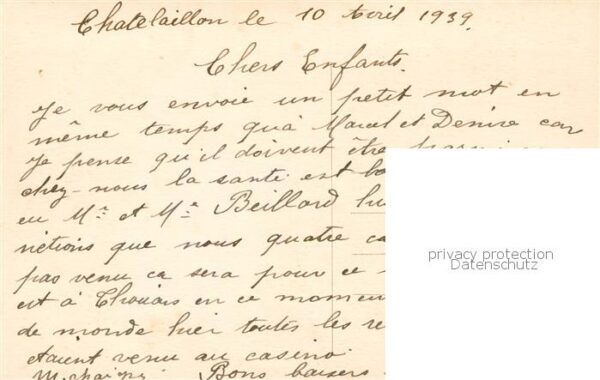 Chatelaillon le 10 Avril 1939.
Chers Enfants.
Je vous envoie un petit mot en
même temps qu'à Marcel et Denise car
je pense qu'il doivent être
chez-nous la santé est
eu Mr. et Me. Beillard
nétions que nous quatre
pas venu ca sera pour ce
est à Thouars en ce
de monde hier toutes les
etaient venu au casino.
Bons baisers
privacy protection
Datenschutz